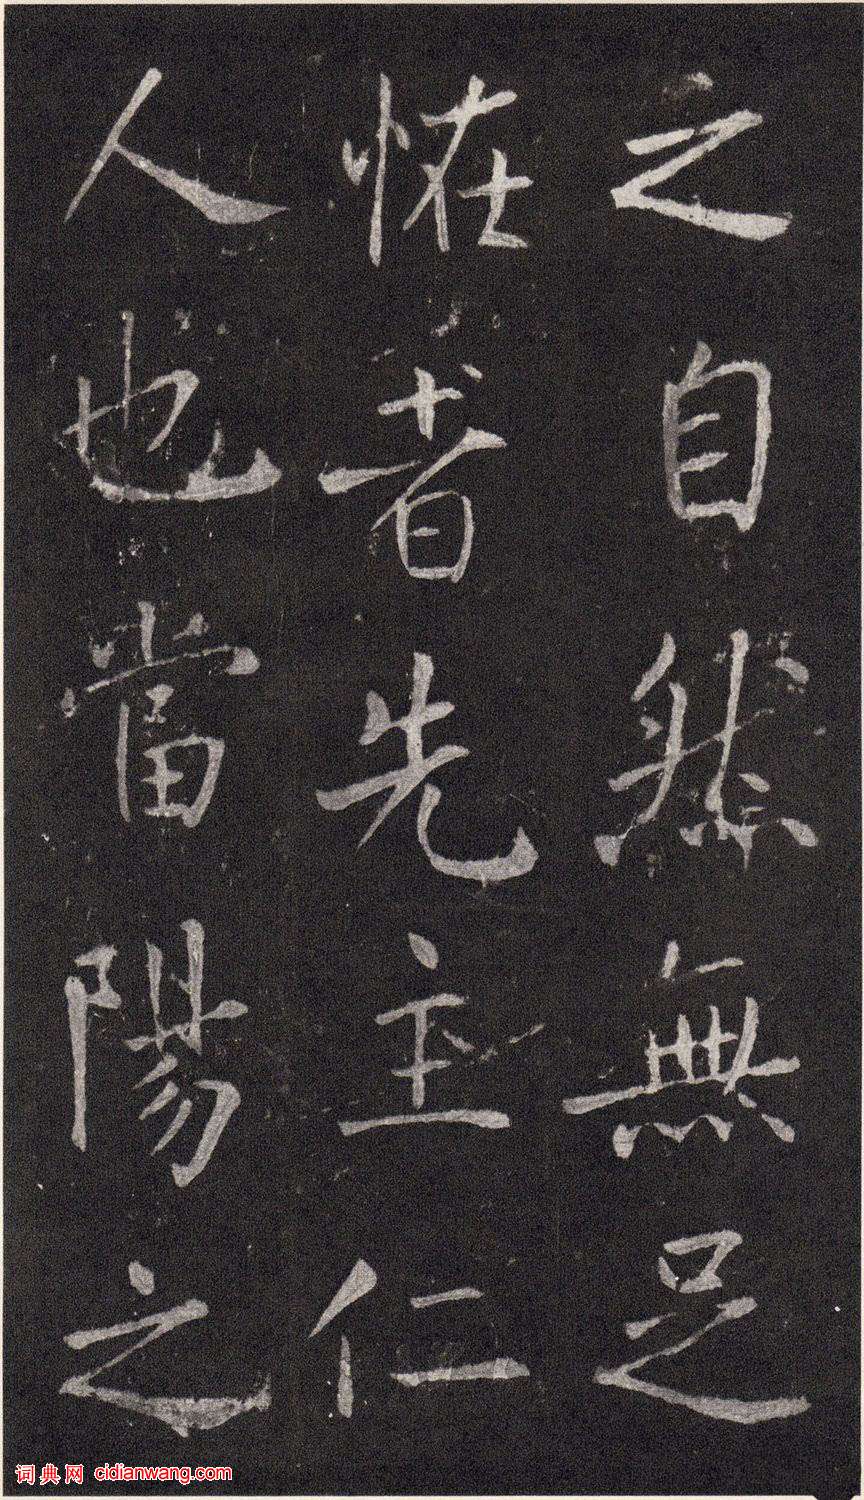 之自然無足
恠者先主仁
人也當陽之
词典网 cidianwang.com